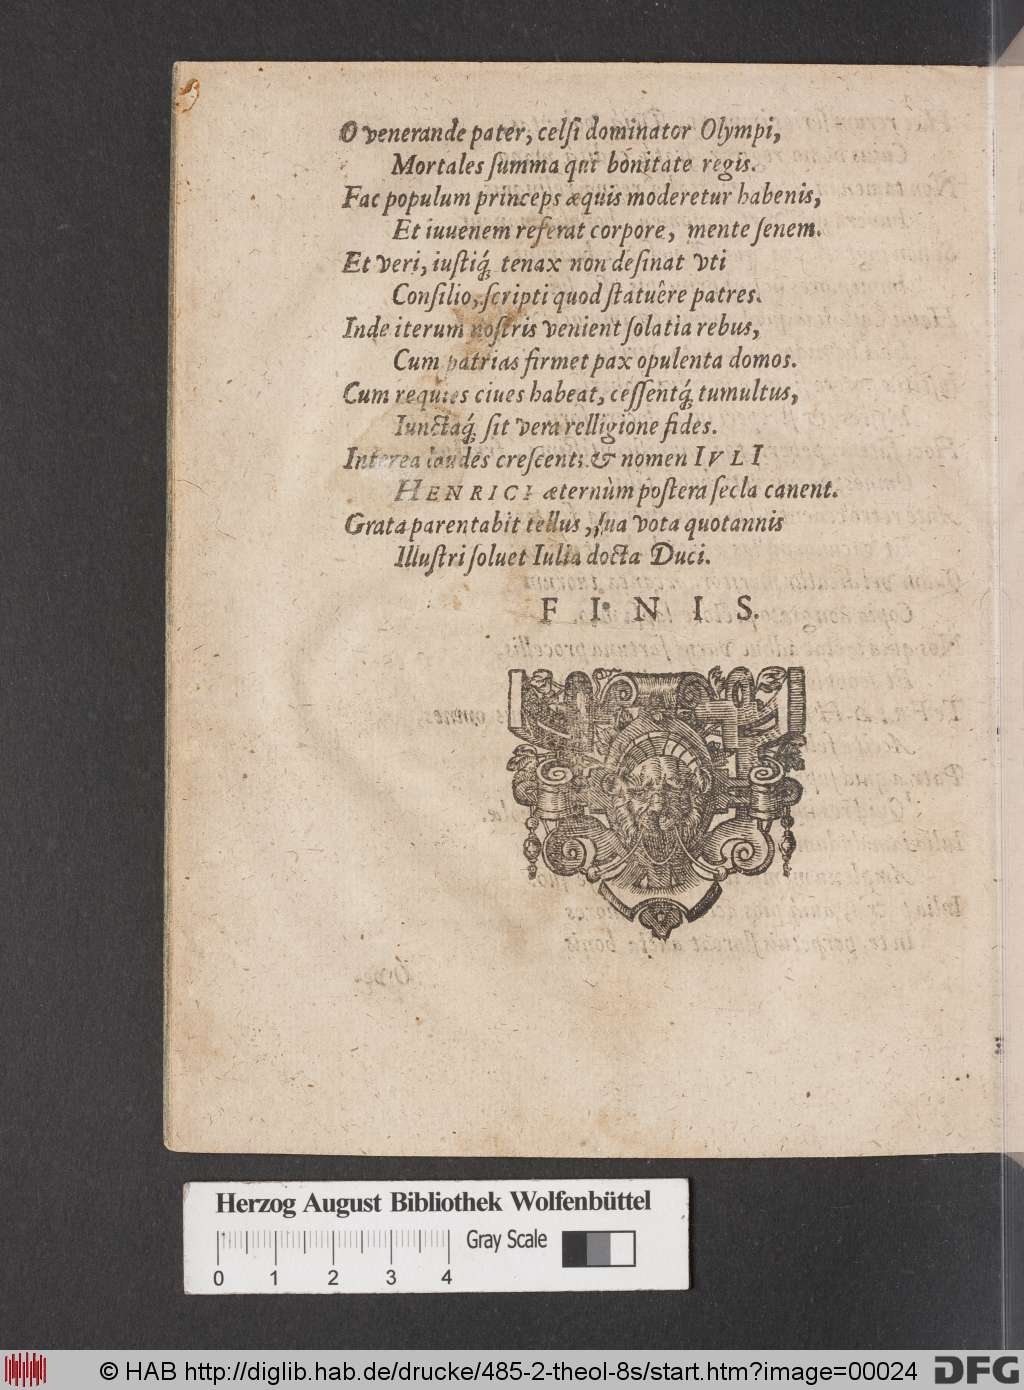 O venerande pater, celsi dominator Olympi,
Mortales summa qui bonitate regis.
Fac populum princeps æquis moderetur habenis,
Et iuuenem referat corpore, mente senem.
Et veri, iustiq́; tenax non desinat vti
Consilio, scripti quod statuêre patres.
Inde iterum nostris venient solatia rebus,
Cum patrias firmet pax opulenta domos.
Cum requies ciues habeat, cessentq́; tumultus,
Iunctaq́; sit vera relligione fides.
Interea laudes crescent; & nomen IVLI
HENRICI æternùm postera secla canent.
Grata parentabit tellus, sua vota quotannis
Illustri soluet Iulia docta Duci.
F I N I S.
Herzog August Bibliothek Wolfenbüttel
0 1 2 3 4
Gray Scale
© HAB http://diglib.hab.de/drucke/485-2-theol-8s/start.htm?image=00024
DFG